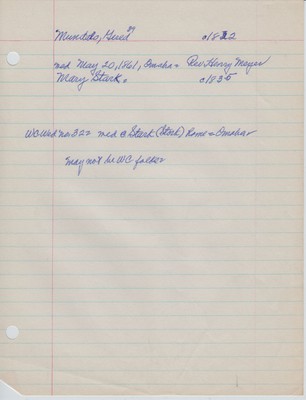 Mundts, Fried 27 c1832
med May 20, 1861, Omaha - Rev. Henry Meyer
Mary Stark. c1835
WC Wed no. 322 med @ Stark (Stork) home - Omaha
may not be WC folder